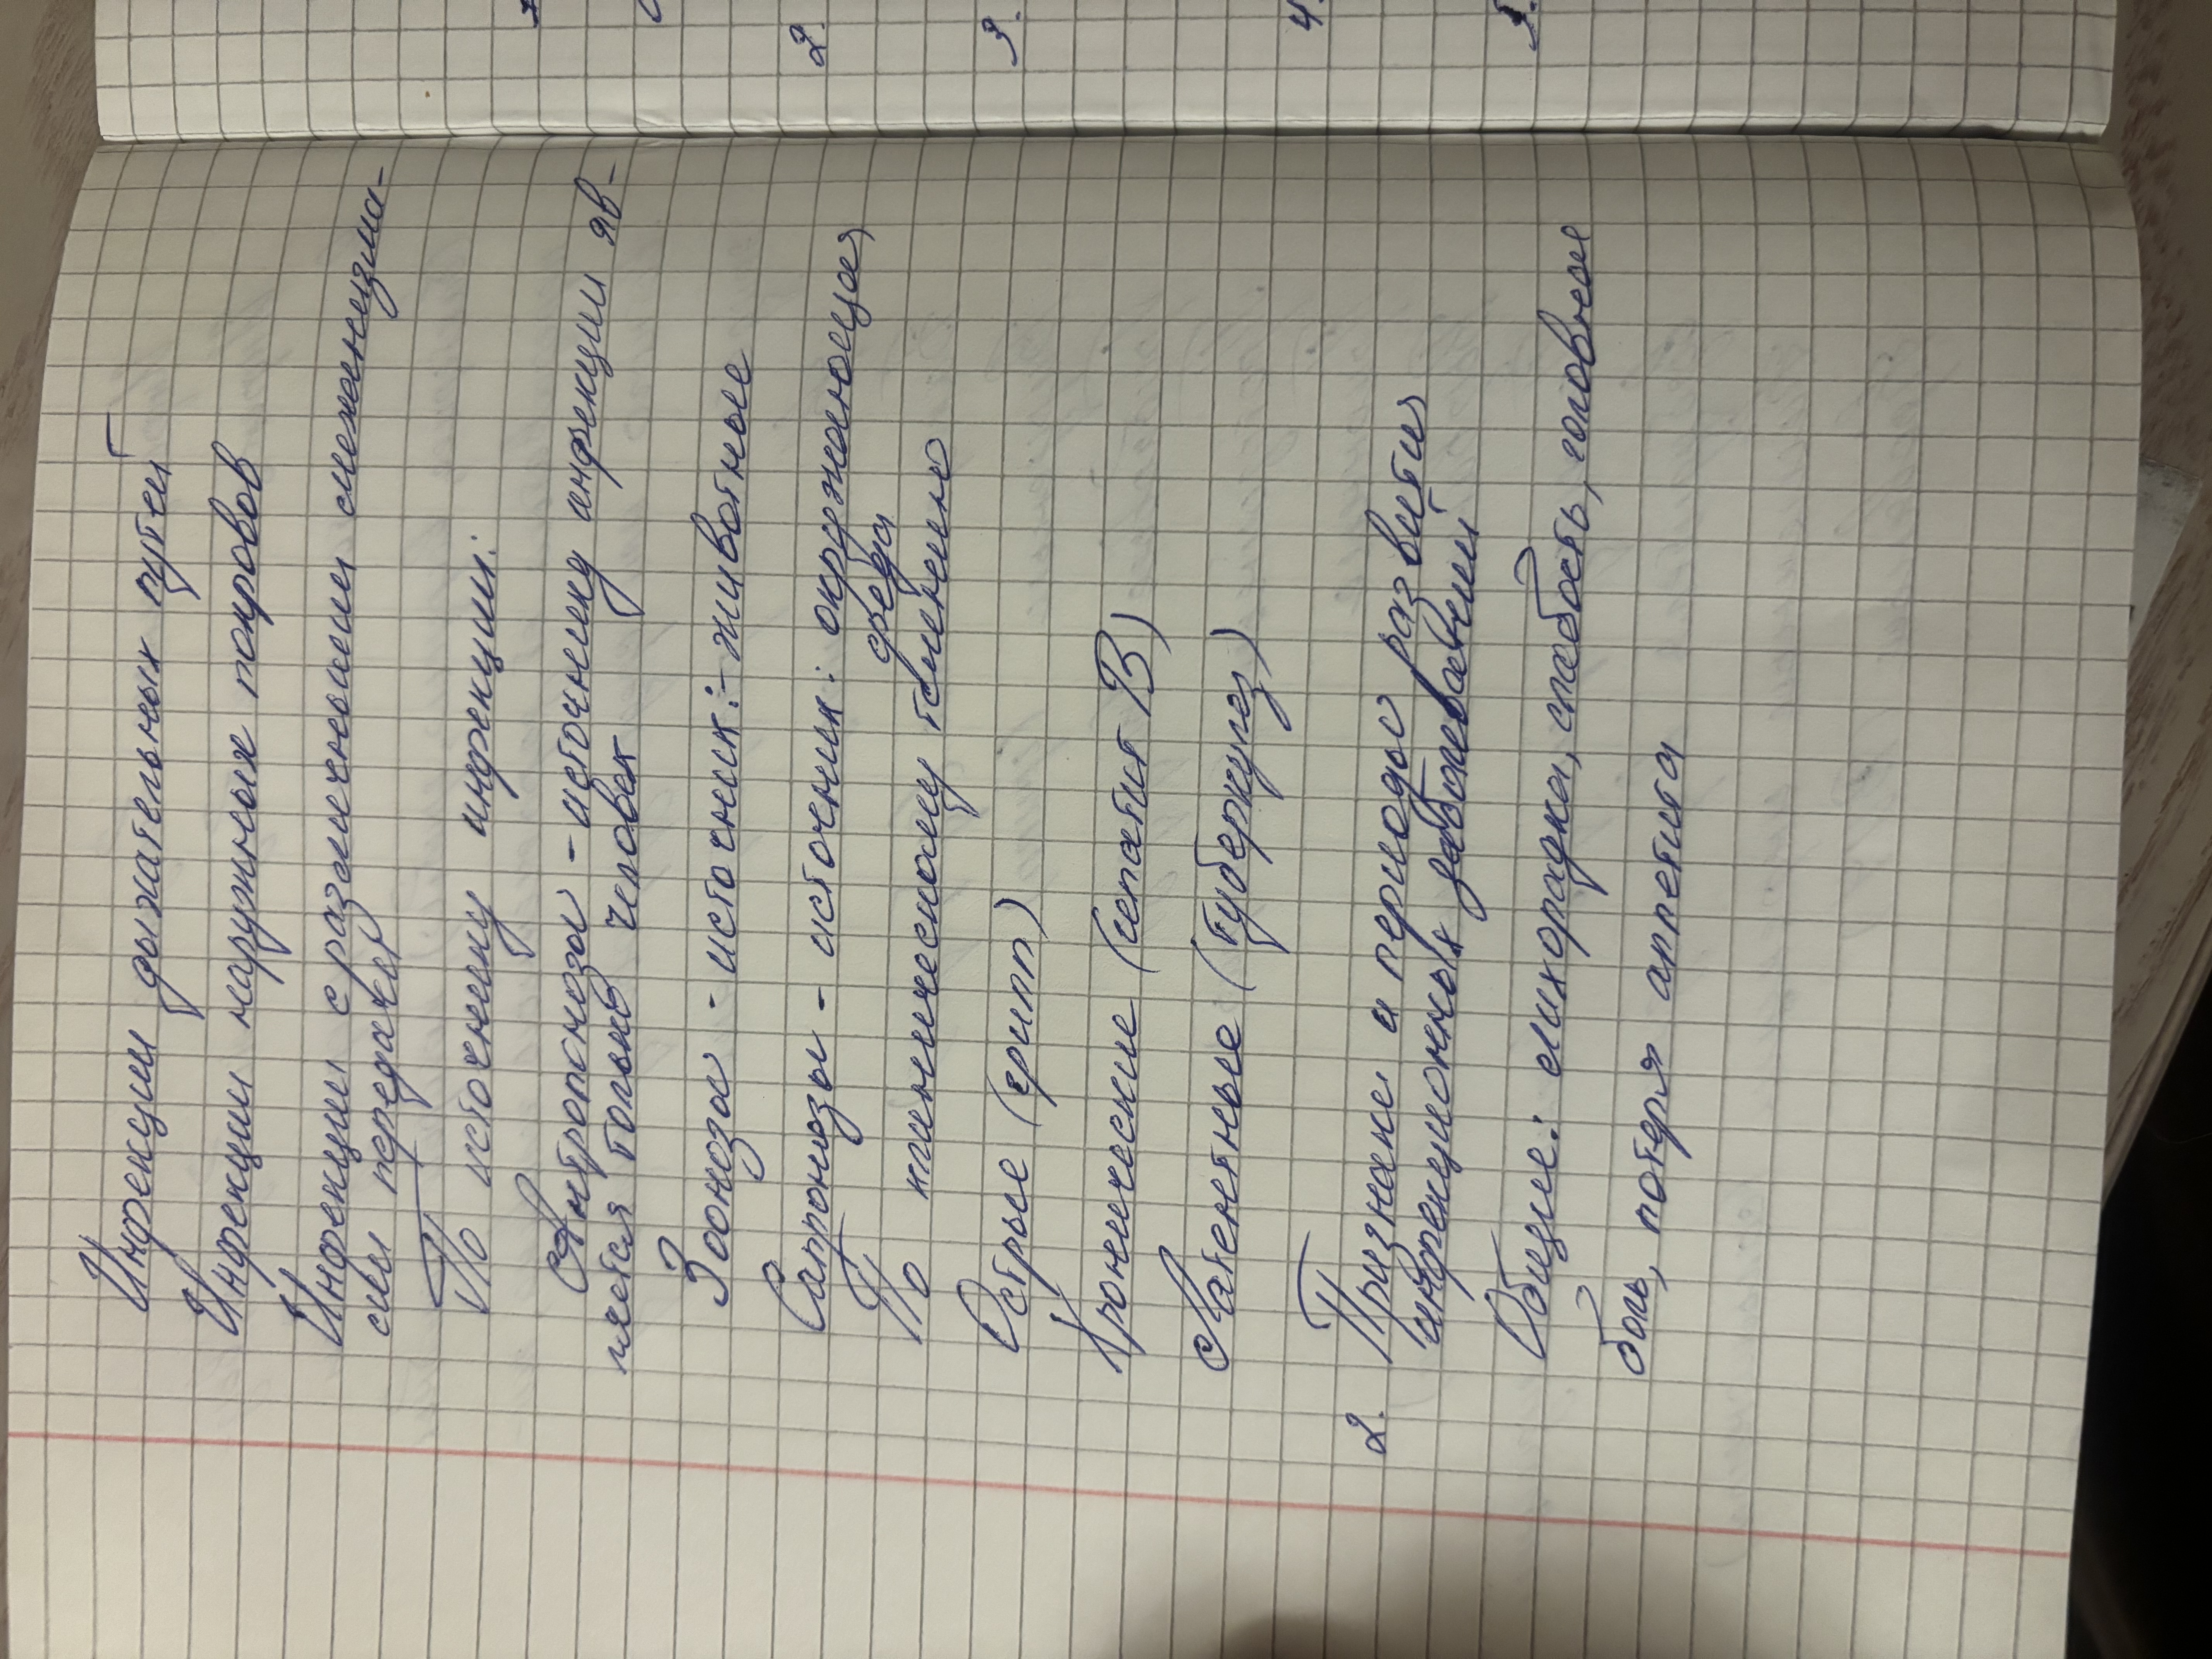 Инфекции дыхательных путей
Инфекции наружных покровов
Инфекции с различными механизма-
ми передачи
По источнику инфекции:
Антропонозы - источнику инфекции яв-
ляется только человек
Зоонозы - источник: - животные
Сапронозы - источник: окружающая
среда
По клиническому течению
Острые (грипп)
Хронические (гепатит В)
Латентные (туберкулез)
2. Признаки и периоды развития
инфекционных заболеваний
Общие: лихорадка, слабость, головная
боль, потеря аппетита
2.
3.
4.